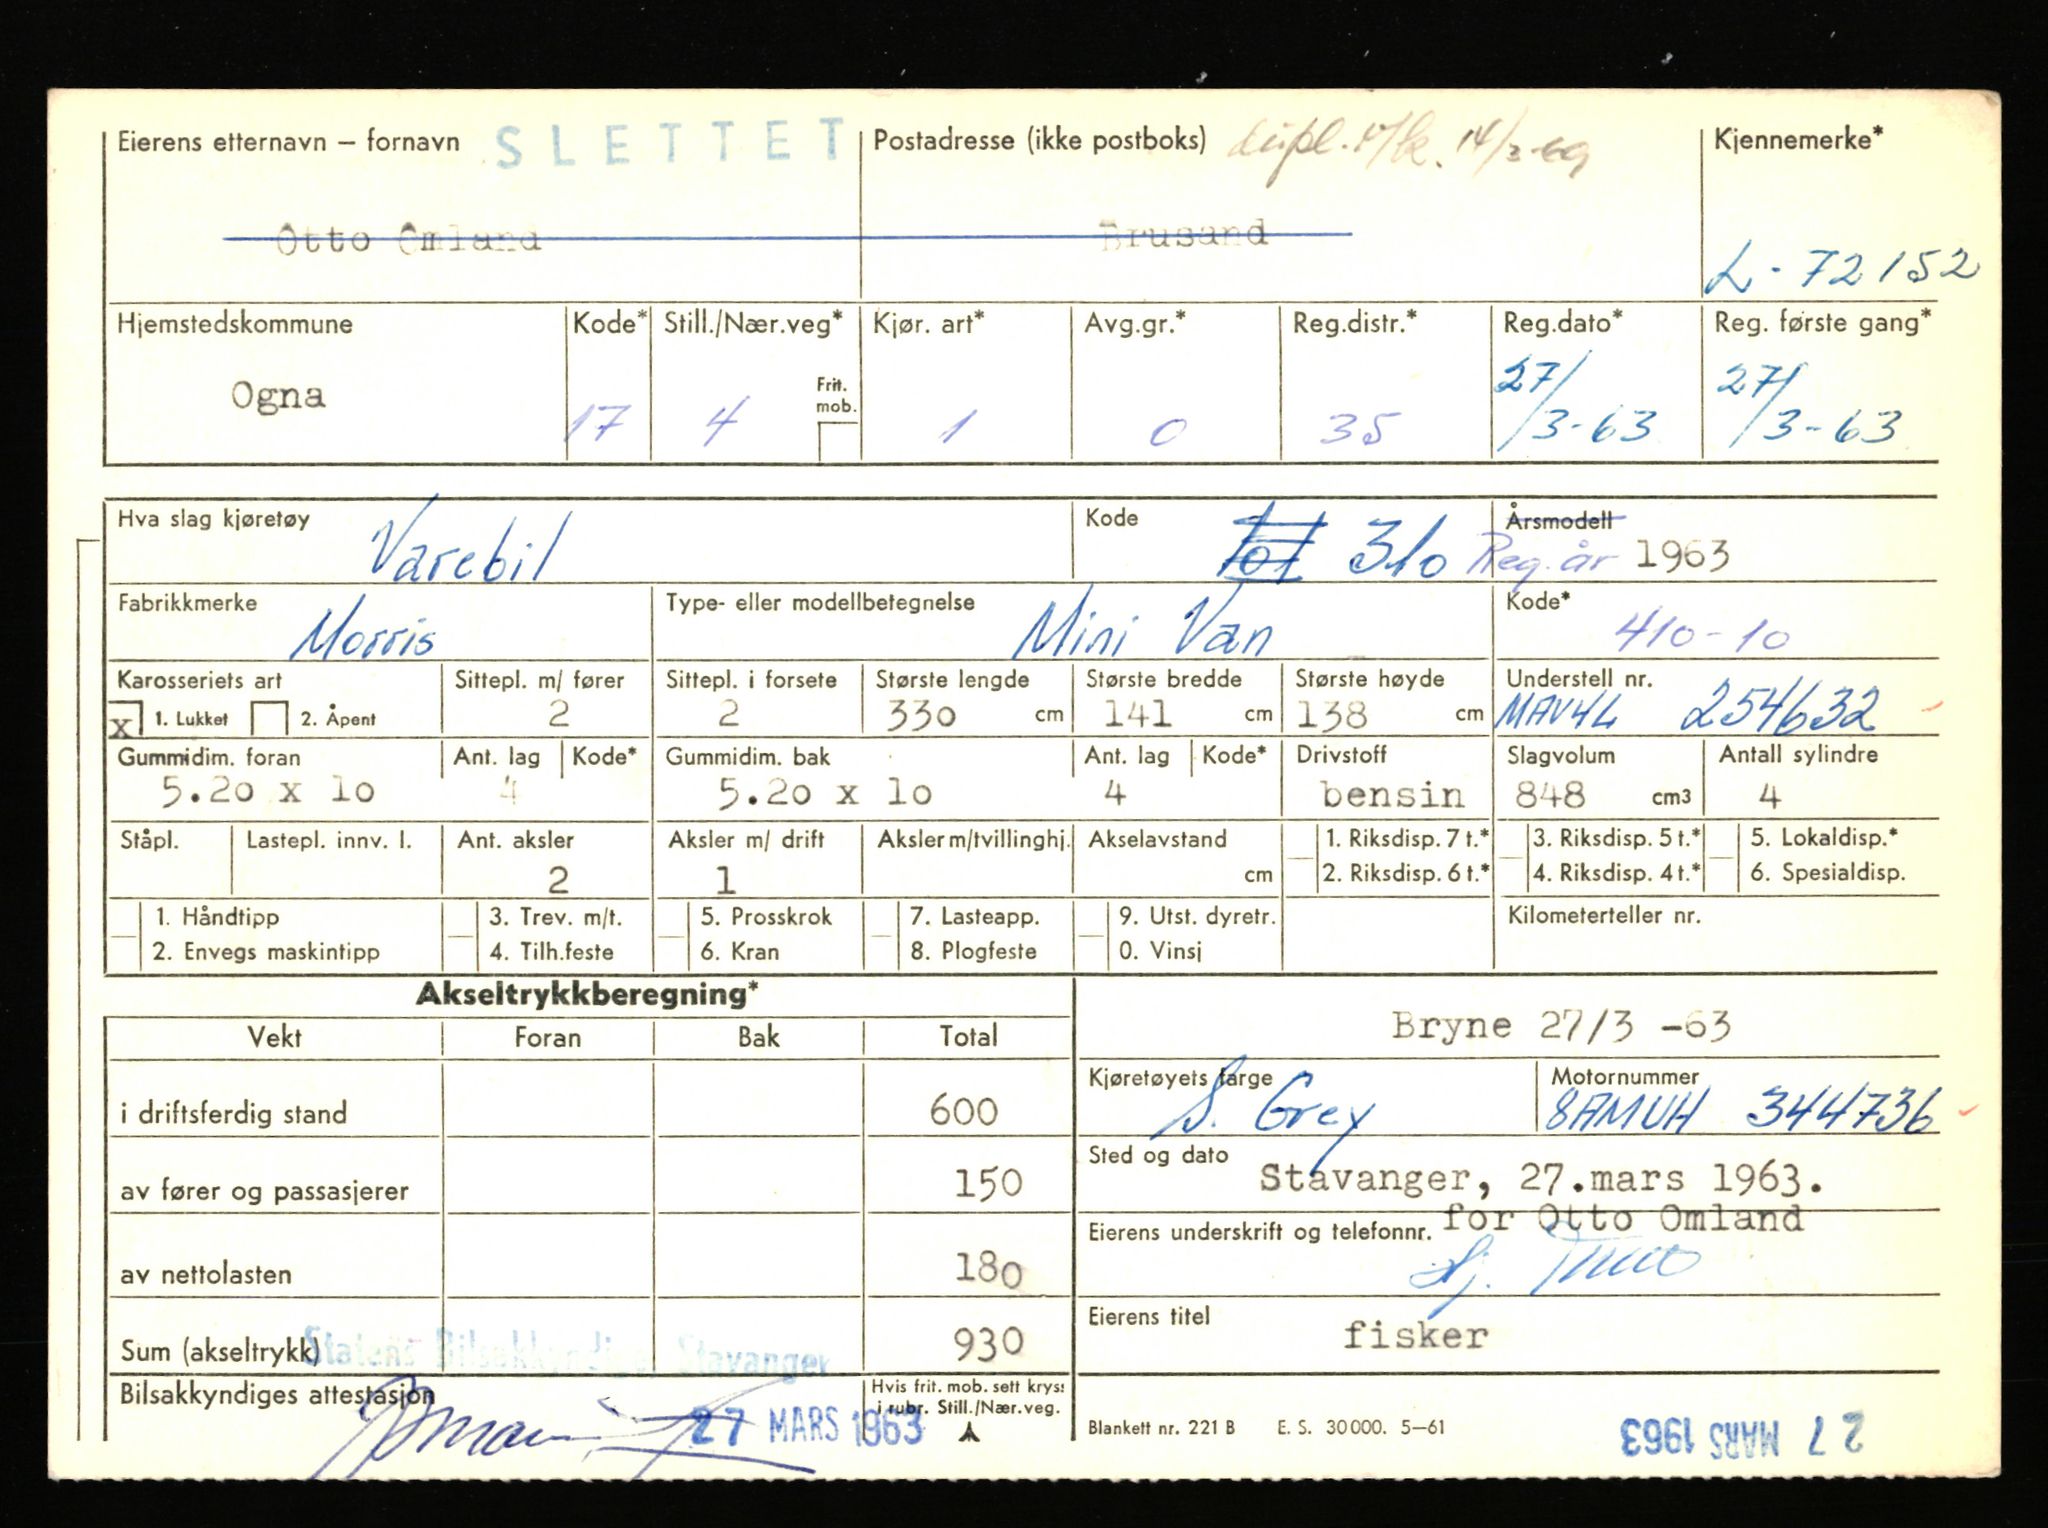 Eierens etternavn – fornavn SLETTET Postadresse (ikke postboks) dupl. 14/3-69 Kjennemerke*
Otto Omland Brusand L - 72152
Hjemstedskommune Kode* Still./Nær.veg* Kjør. art* Avg.gr.* Reg.distr.* Reg.dato* Reg. første gang*
Ogna 17 4 Frit. mob. 1 0 35 27/3-63 27/3-63
Hva slag kjøretøy Varebil Kode 101 310 Årsmodell Reg.år 1963
Fabrikkmerke Morris Type- eller modellbetegnelse Mini Van Kode* 410-10
Karosseriets art Sittepl. m/ fører Sittepl. i forsete Største lengde Største bredde Største høyde Understell nr.
x 1. Lukket 2. Åpent 2 2 330 cm 141 cm 138 cm MAV4L 254632
Gummidim. foran Ant. lag Kode* Gummidim. bak Ant. lag Kode* Drivstoff Slagvolum Antall sylindre
5.20 x 10 4 5.20 x 10 4 bensin 848 cm3 4
Ståpl. Lastepl. innv. l. Ant. aksler Aksler m/ drift Aksler m/tvillinghj. Akselavstand 1. Riksdisp. 7 t.* 3. Riksdisp. 5 t.* 5. Lokaldisp.*
2 1 cm 2. Riksdisp. 6 t.* 4. Riksdisp. 4 t.* 6. Spesialdisp.
1. Håndtipp 3. Trev. m/t. 5. Prosskrok 7. Lasteapp. 9. Utst. dyretr. Kilometerteller nr.
2. Envegs maskintipp 4. Tilh.feste 6. Kran 8. Plogfeste 0. Vinsj
Akseltrykkberegning*
Vekt Foran Bak Total Bryne 27/3 -63
Kjøretøyets farge S. Grey Motornummer 8AMUH 344736
i driftsferdig stand 600
Sted og dato Stavanger, 27.mars 1963.
av fører og passasjerer 150
Eierens underskrift og telefonnr. for Otto Omland
av nettolasten 180
Eierens titel fisker
Sum (akseltrykk) 930
Statens Bilsakkyndige, Stavanger
Bilsakkyndiges attestasjon 27 MARS 1963 Hvis frit. mob. sett kryss i rubr. Still./Nær.veg.
Blankett nr. 221 B E. S. 30000. 5–61 27 MARS 1963